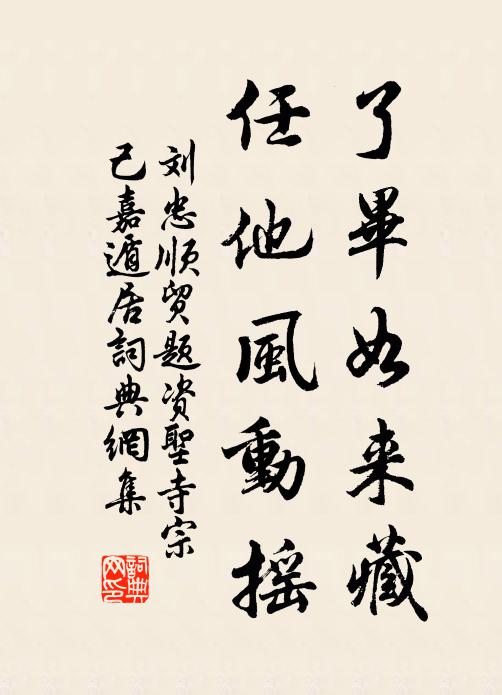 了畢如来藏
任他風動摇
刘忠順贸题资聖寺宗
己嘉遁居詞典網集
詞典网印